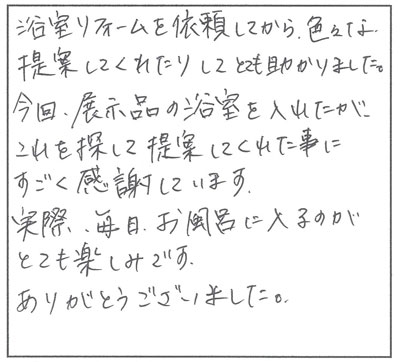 浴室リフォームを依頼してから、色々な
提案してくれたりしてとても助かりました。
今回、展示品の浴室を入れたが、
これを探して提案してくれた事に
すごく感謝しています。
実際、毎日、お風呂に入るのが
とても楽しみです。
ありがとうございました。